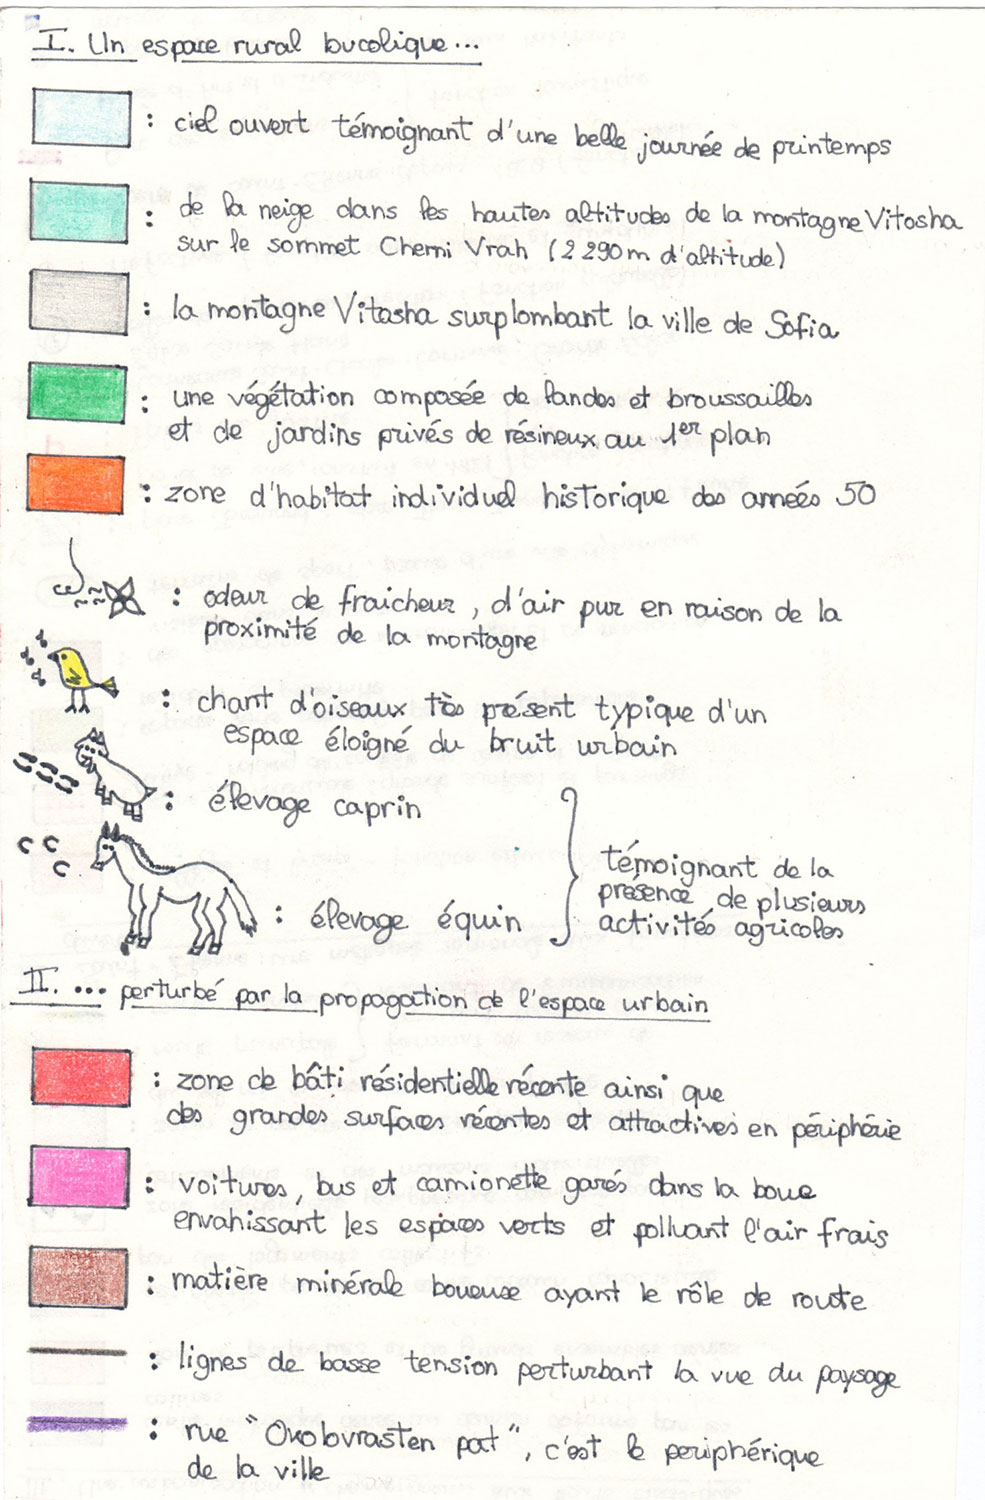 I. Un espace rural bucolique...
: ciel ouvert témoignant d'une belle journée de printemps
: de la neige dans les hautes altitudes de la montagne Vitosha
sur le sommet Cherni Vrah (2 290m d'altitude)
: la montagne Vitosha surplombant la ville de Sofia
: une végétation composée de landes et broussailles
et de jardins privés de résineux au 1er plan
: zone d'habitat individuel historique des années 50
: odeur de fraicheur, d'air pur en raison de la
proximité de la montagne
: chant d'oiseaux très présent typique d'un
espace éloigné du bruit urbain
: élevage caprin
: élevage équin
témoignant de la
présence de plusieurs
activités agricoles
II. ... perturbé par la propagation de l'espace urbain
: zone de bâti résidentielle récente ainsi que
des grandes surfaces récentes et attractives en périphérie
: voitures, bus et camionette garés dans la boue
envahissant les espaces verts et polluant l'air frais
: matière minérale boueuse ayant le rôle de route
: lignes de basse tension perturbant la vue du paysage
: rue "Okolovrasten pat", c'est le periphérique
de la ville